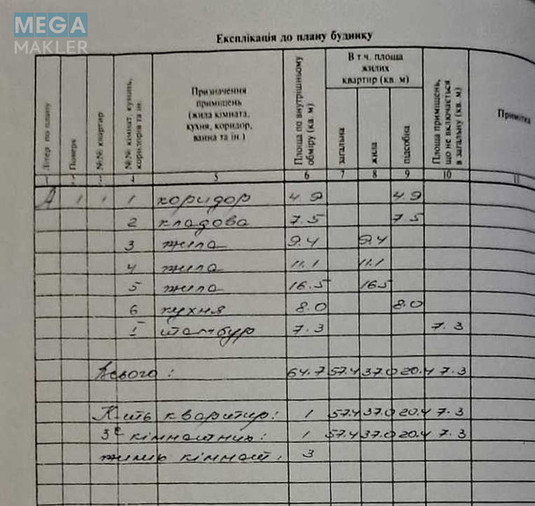 MEGA
MAKLER
Експлікація до плану будинку
Літер по плану
Поверх
№№ квартир
№№ кімнат, кухонь, коридорів та ін.
Призначення
приміщень
(жила кімната,
кухня, коридор,
ванна та ін.)
Площа по внутрішньому
обміру (кв. м)
В т.ч. площа
жилих
квартир (кв. м)
загальна
жила
підсобна
Площа приміщень,
що не включається
в загальну (кв. м)
Примітка
1 2 3 4 5 6 7 8 9 10 11
А 1 1 1 коридор 4.9 4.9
2 кладова 7.5 7.5
3 жила 9.4 9.4
4 жила 11.1 11.1
5 жила 16.5 16.5
6 кухня 8.0 8.0
I тамбур 7.3 7.3
Всього: 64.7 57.4 37.0 20.4 7.3
К-ть квартир: 1 57.4 37.0 20.4 7.3
3х кімнатних: 1 57.4 37.0 20.4 7.3
жилих кімнат: 3